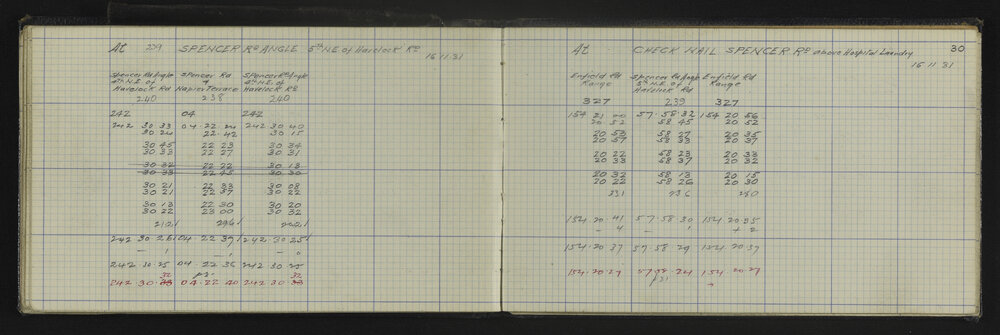 At 239 SPENCER RD ANGLE 5TH N.E. of Havelock RD
16 11 31
Spencer Rd Angle Spencer Rd Spencer Rd Angle
4th N.E. of & 4th N.E. of
Havelock Rd Napier Terrace Havelock RD
240 238 240
242 04 242
242 30 33 04 22 24 242 30 40
30 24 22 42 30 15
30 45 22 23 30 34
30 33 22 27 30 31
30 32 22 22 30 18
30 33 22 45 30 30
30 21 22 33 30 08
30 21 22 37 30 22
30 13 22 30 30 20
30 22 23 00 30 32
212 296 202
242 30 26 04 22 37 242 30 25
242 30 25 04 22 36 242 30 25
32 32
242 30 33 04 22 40 242 30 33
30
At CHECK NAIL SPENCER RD above Hospital Laundry
16 11 31
Enfield Rd Spencer Rd Angle Enfield Rd
Range 5th N.E. of Range
Havelock Rd
327 239 327
154 21 00 57 58 32 154 20 56
20 52 58 45 20 52
20 53 58 27 20 35
20 57 58 33 20 37
20 22 58 23 20 33
20 33 58 37 20 32
20 32 58 13 20 15
20 22 58 26 20 30
331 236
154 20 41 57 58 30 154 20 35
- 4 - 1 + 2
154 20 37 57 58 29 154 20 37
154 20 29 57 58 24 154 20 29